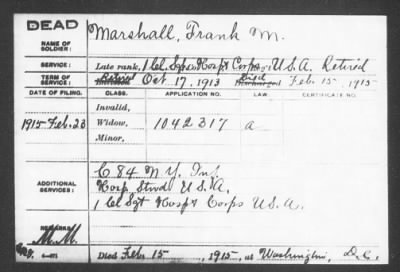 DEAD
NAME OF SOLDIER: Marshall, Frank M.
SERVICE: Late rank, 1 Cl. Sgt. Hosp't Corps, U.S.A. Retired
TERM OF SERVICE: Retired Oct 17, 1913 Died Feb. 15, 1915
DATE OF FILING. CLASS. APPLICATION NO. LAW. CERTIFICATE NO.
Invalid,
1915-Feb.-23 Widow, 1042317 a
Minor,
C 84 N.Y. Inf.
ADDITIONAL SERVICES: Hosp Stwd U.S.A.
1 Cl Sgt Hosp't Corps U.S.A.
REMARKS: M.M.
Died Feb. 15, 1915, at Washington, D.C.